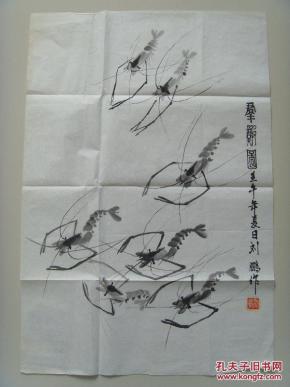 群虾图
壬午年夏日刘
鹏作
孔夫子旧书网